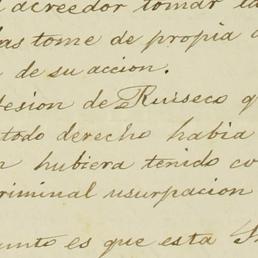 acreedor tomar la
las tome de propia a
de su accion.
fesion de Ruiseco q
todo derecho habia
n hubiera tenido co
criminal usurpacion
unto es que esta